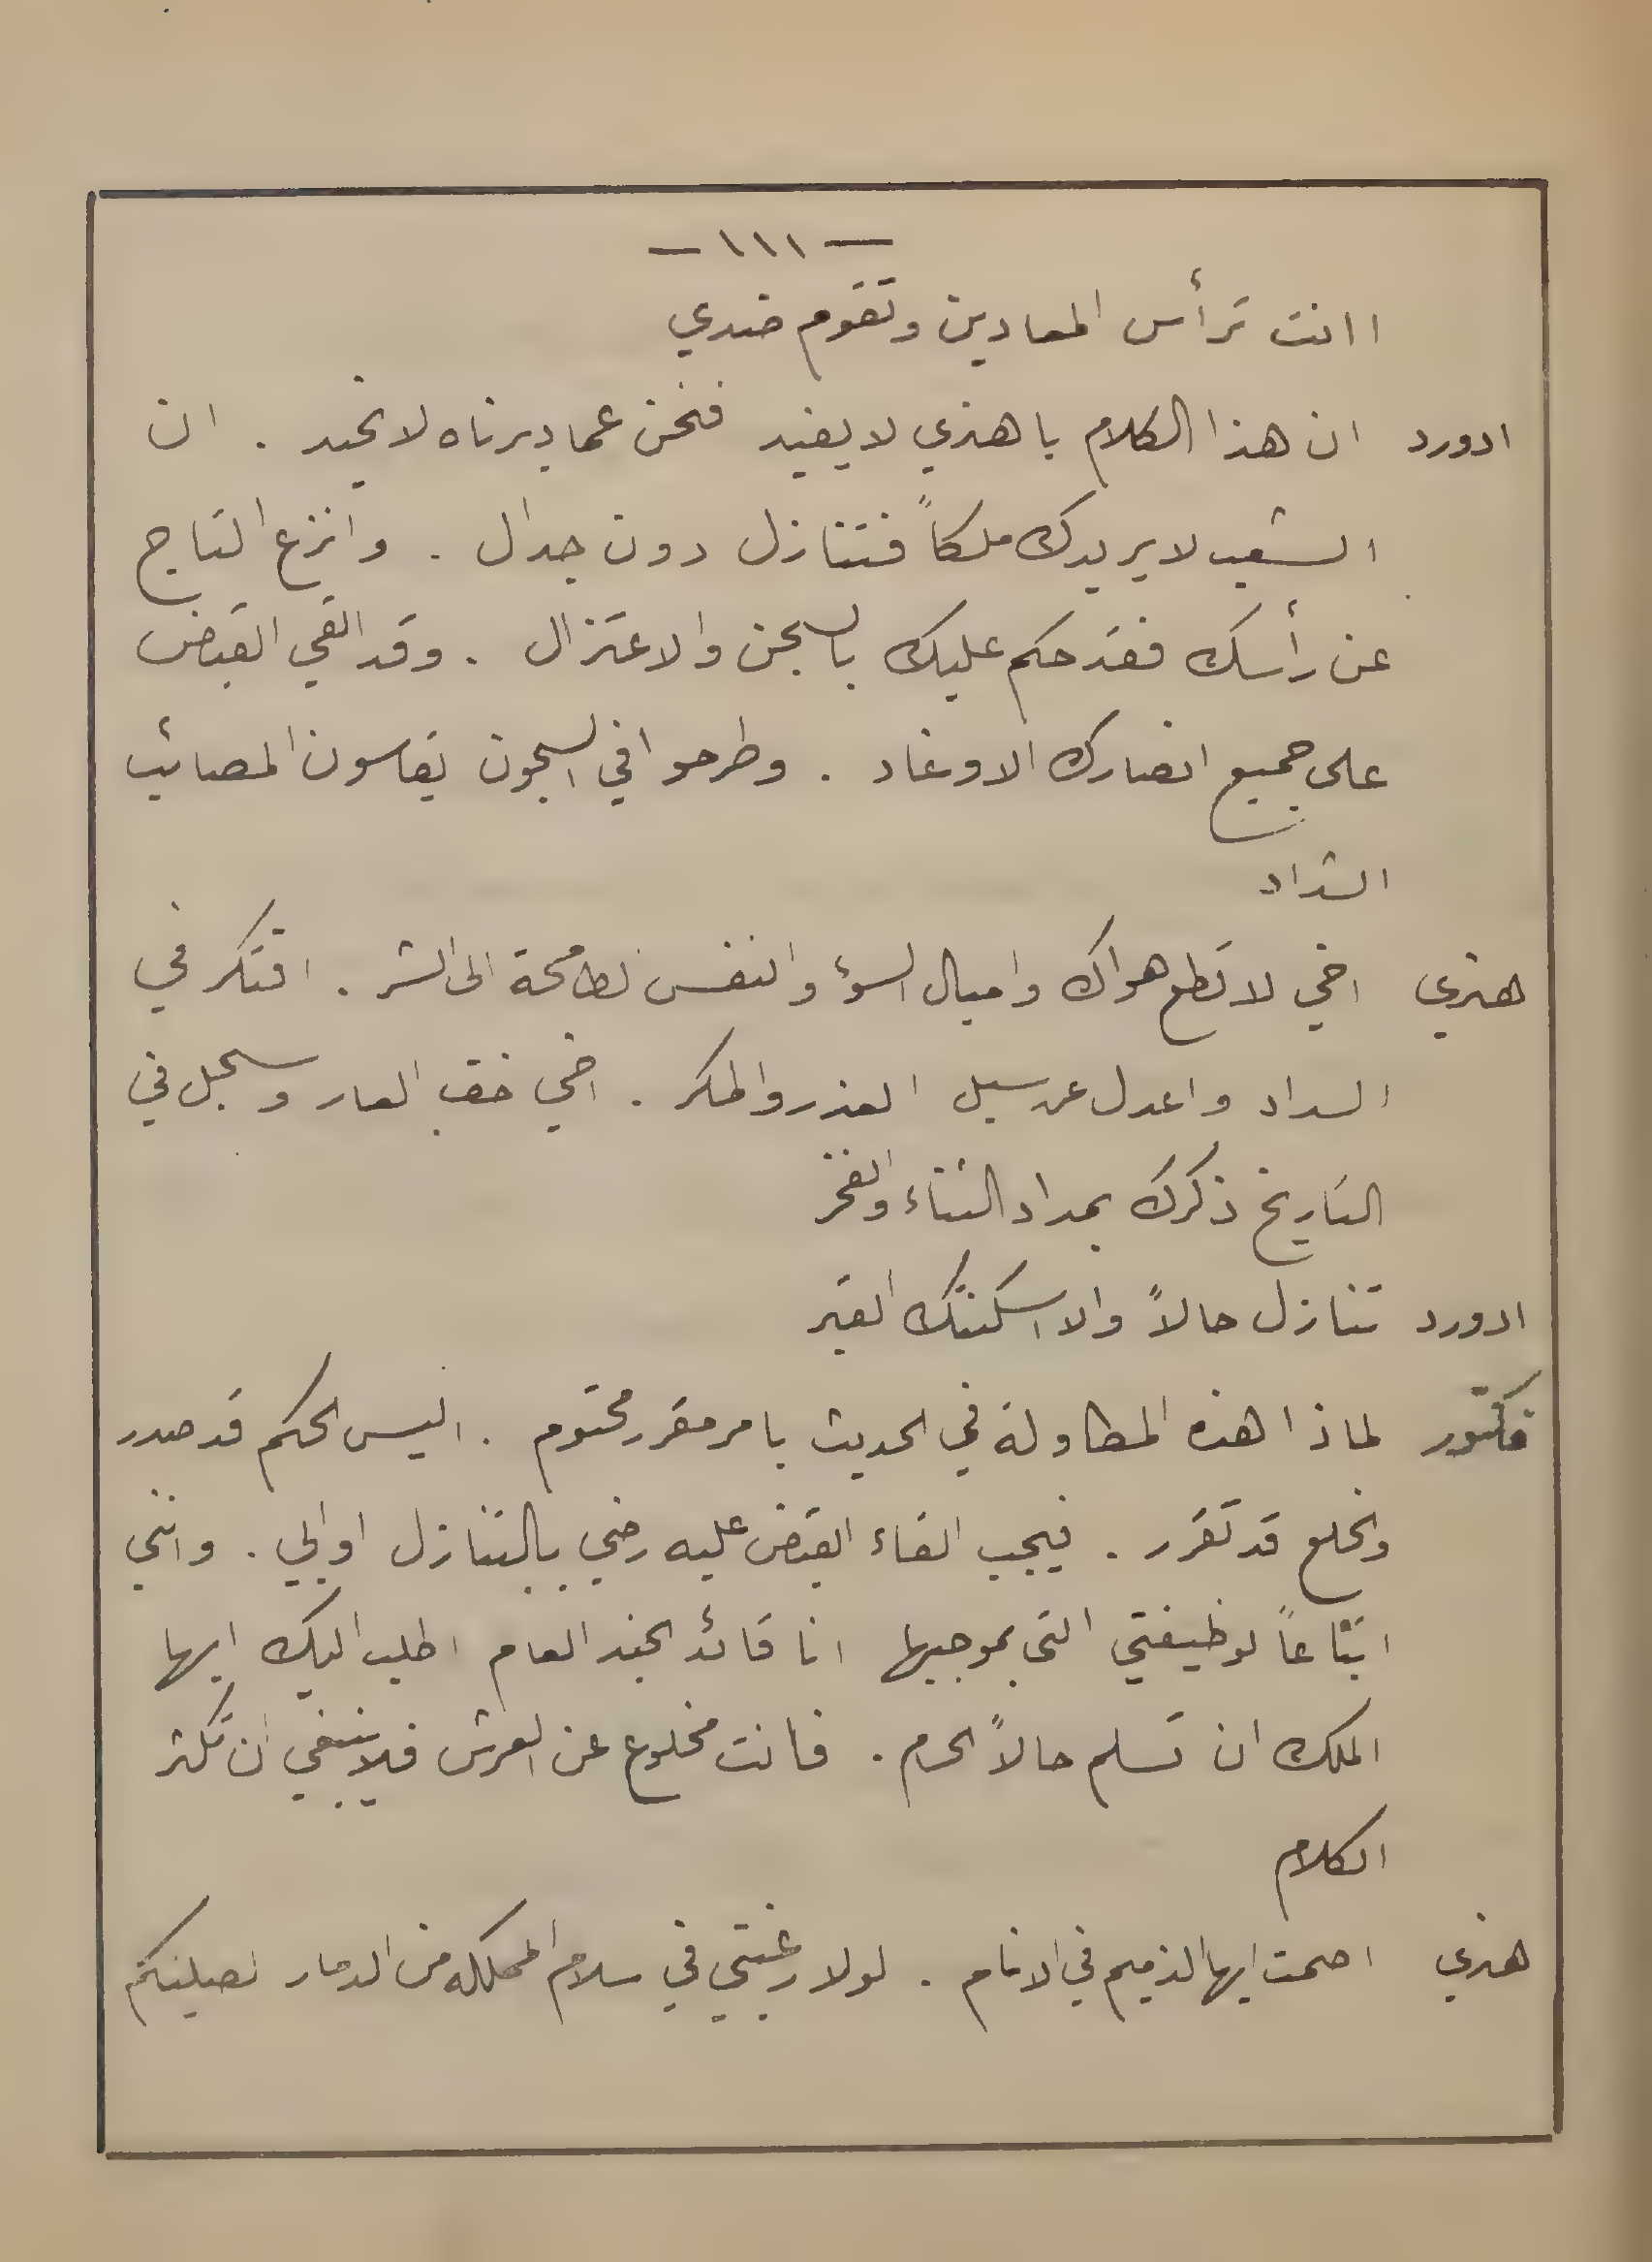 — ١١١ —
اانت ترأس المعادين وتقوم ضدي
ادورد ان هذا الكلام يا هنري لا يفيد فنحن عما دبرناه لا نحيد . ان
الشعب لا يريدك ملكاً فتنازل دون جدال . وانزع التاج
عن رأسك فقد حكم عليك بالسجن والاعتزال . وقد القي القبض
على جميع انصارك الاوغاد . وطرحوا في السجون يقاسون المصائب
الشداد
هنري اخي لا تطع هواك واميال السؤ والنفس لطامحة الى الشر . افتكر في
السداد واعدل عن سبيل الغدر والمكر . اخي خف العار وسجل في
التاريخ ذكرك بمداد الثناء والفخر
ادورد تنازل حالاً والا اسكنتك القبر
فكتور لماذا هذه المطاولة في الحديث بامر مقرر محتوم . اليس الحكم قد صدر
والخلع قد تقرر . فيجب القاء القبض عليه رضي بالتنازل او ابي . وانني
اتباعاً لوظيفتي التي بموجبها انا قائد الجند العام اطلب اليك ايها
الملك ان تسلم حالاً الحرم . فانت مخلوع عن العرش فلا ينبغي ان تكثر
الكلام
هنري اصمت ايها الذميم في الانام . لولا رغبتي في سلام المملكه من الدمار لصلبنكم